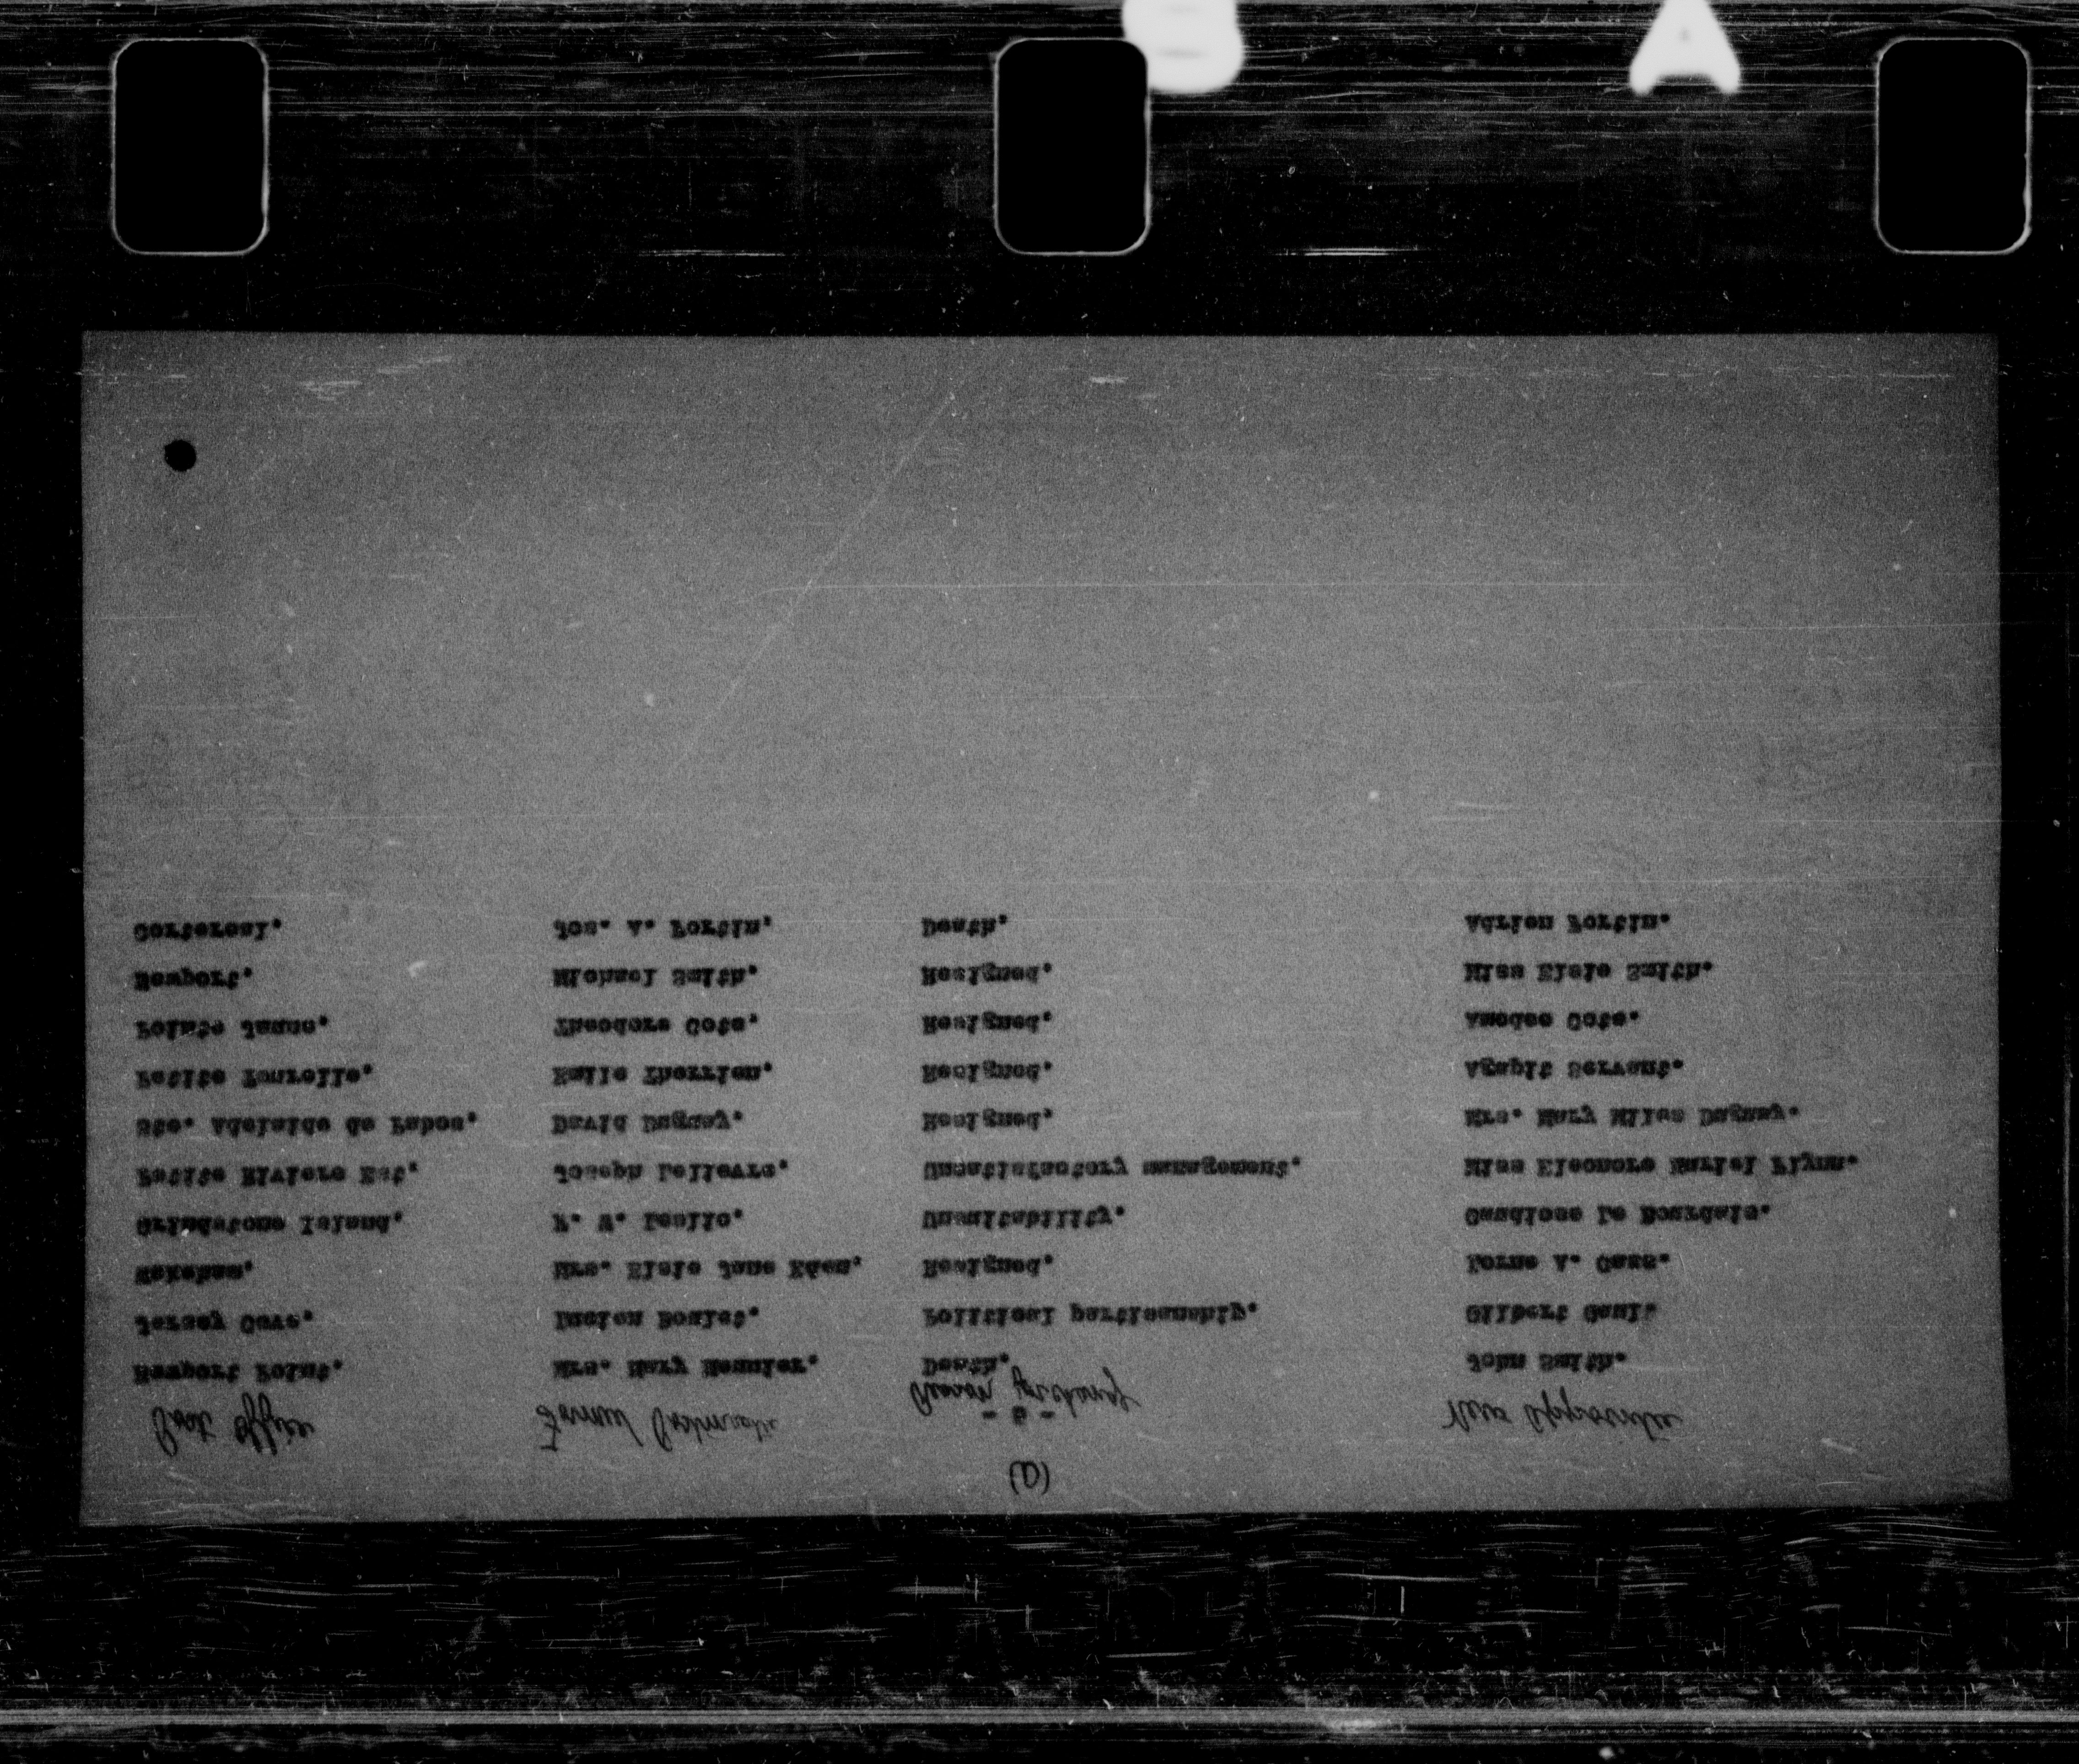 Post Office Former Postmaster Reason for change New Appointee
Newport Point. Mrs. Mary Meunier. Death. John Smith.
Jersey Cove. Lucien Boulet. Political partisanship. Gilbert
Wakeham. Mrs. Elsie Jane Eden. Resigned. Lorne A.
Grindstone Island. F. W. Leslie. Unsuitability. Gaudiose Le Bourdais.
Petite Riviere Est. Joseph Lelievre. Unsatisfactory management. Miss Eleonore Muriel Flynn.
Ste. Adelaide de Pabos. David Duguay. Resigned. Mrs. Mary Miles Duguay.
Petite Tourelle. Emile Therrien. Resigned. Agapit Servant.
Pointe Jaune. Theodore Cote. Resigned. Amedee Cote.
Newport. Michael Smith. Resigned. Miss Elsie Smith.
Cortereal. Jos. A. Fortin. Death. Adrien Fortin.